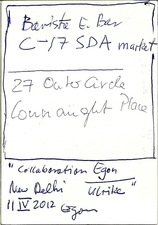 E. Bar
C-17 SDA market
27 Outer Circle
Connaught Place
"Collaboration Egon
Ulrike"
New Delhi
11 IV 2012 Egon